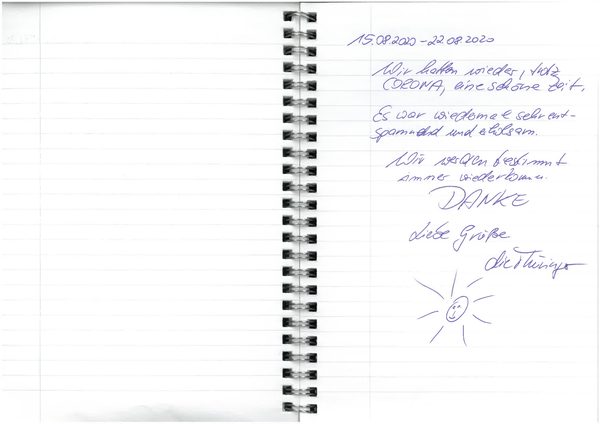 15.08.2020 – 22.08.2020
Wir hatten wieder, trotz
CORONA, eine schöne Zeit.
Es war wiedermal sehr ent-
spannend und erholsam.
Wir werden bestimmt
immer wiederkommen.
DANKE
Liebe Grüße
die Thüringer